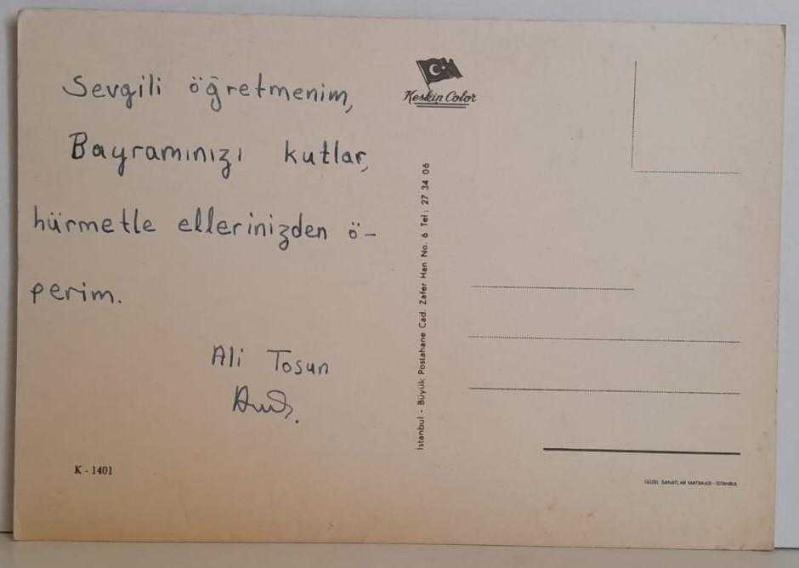 Sevgili öğretmenim,
Bayramınızı kutlar,
hürmetle ellerinizden ö-
perim.
Ali Tosun
K - 1401
Keskin Color
İstanbul - Büyük Postahane Cad. Zafer Han No. 6 Tel: 27 34 06
GÜZEL SANATLAR MATBAASI - İSTANBUL